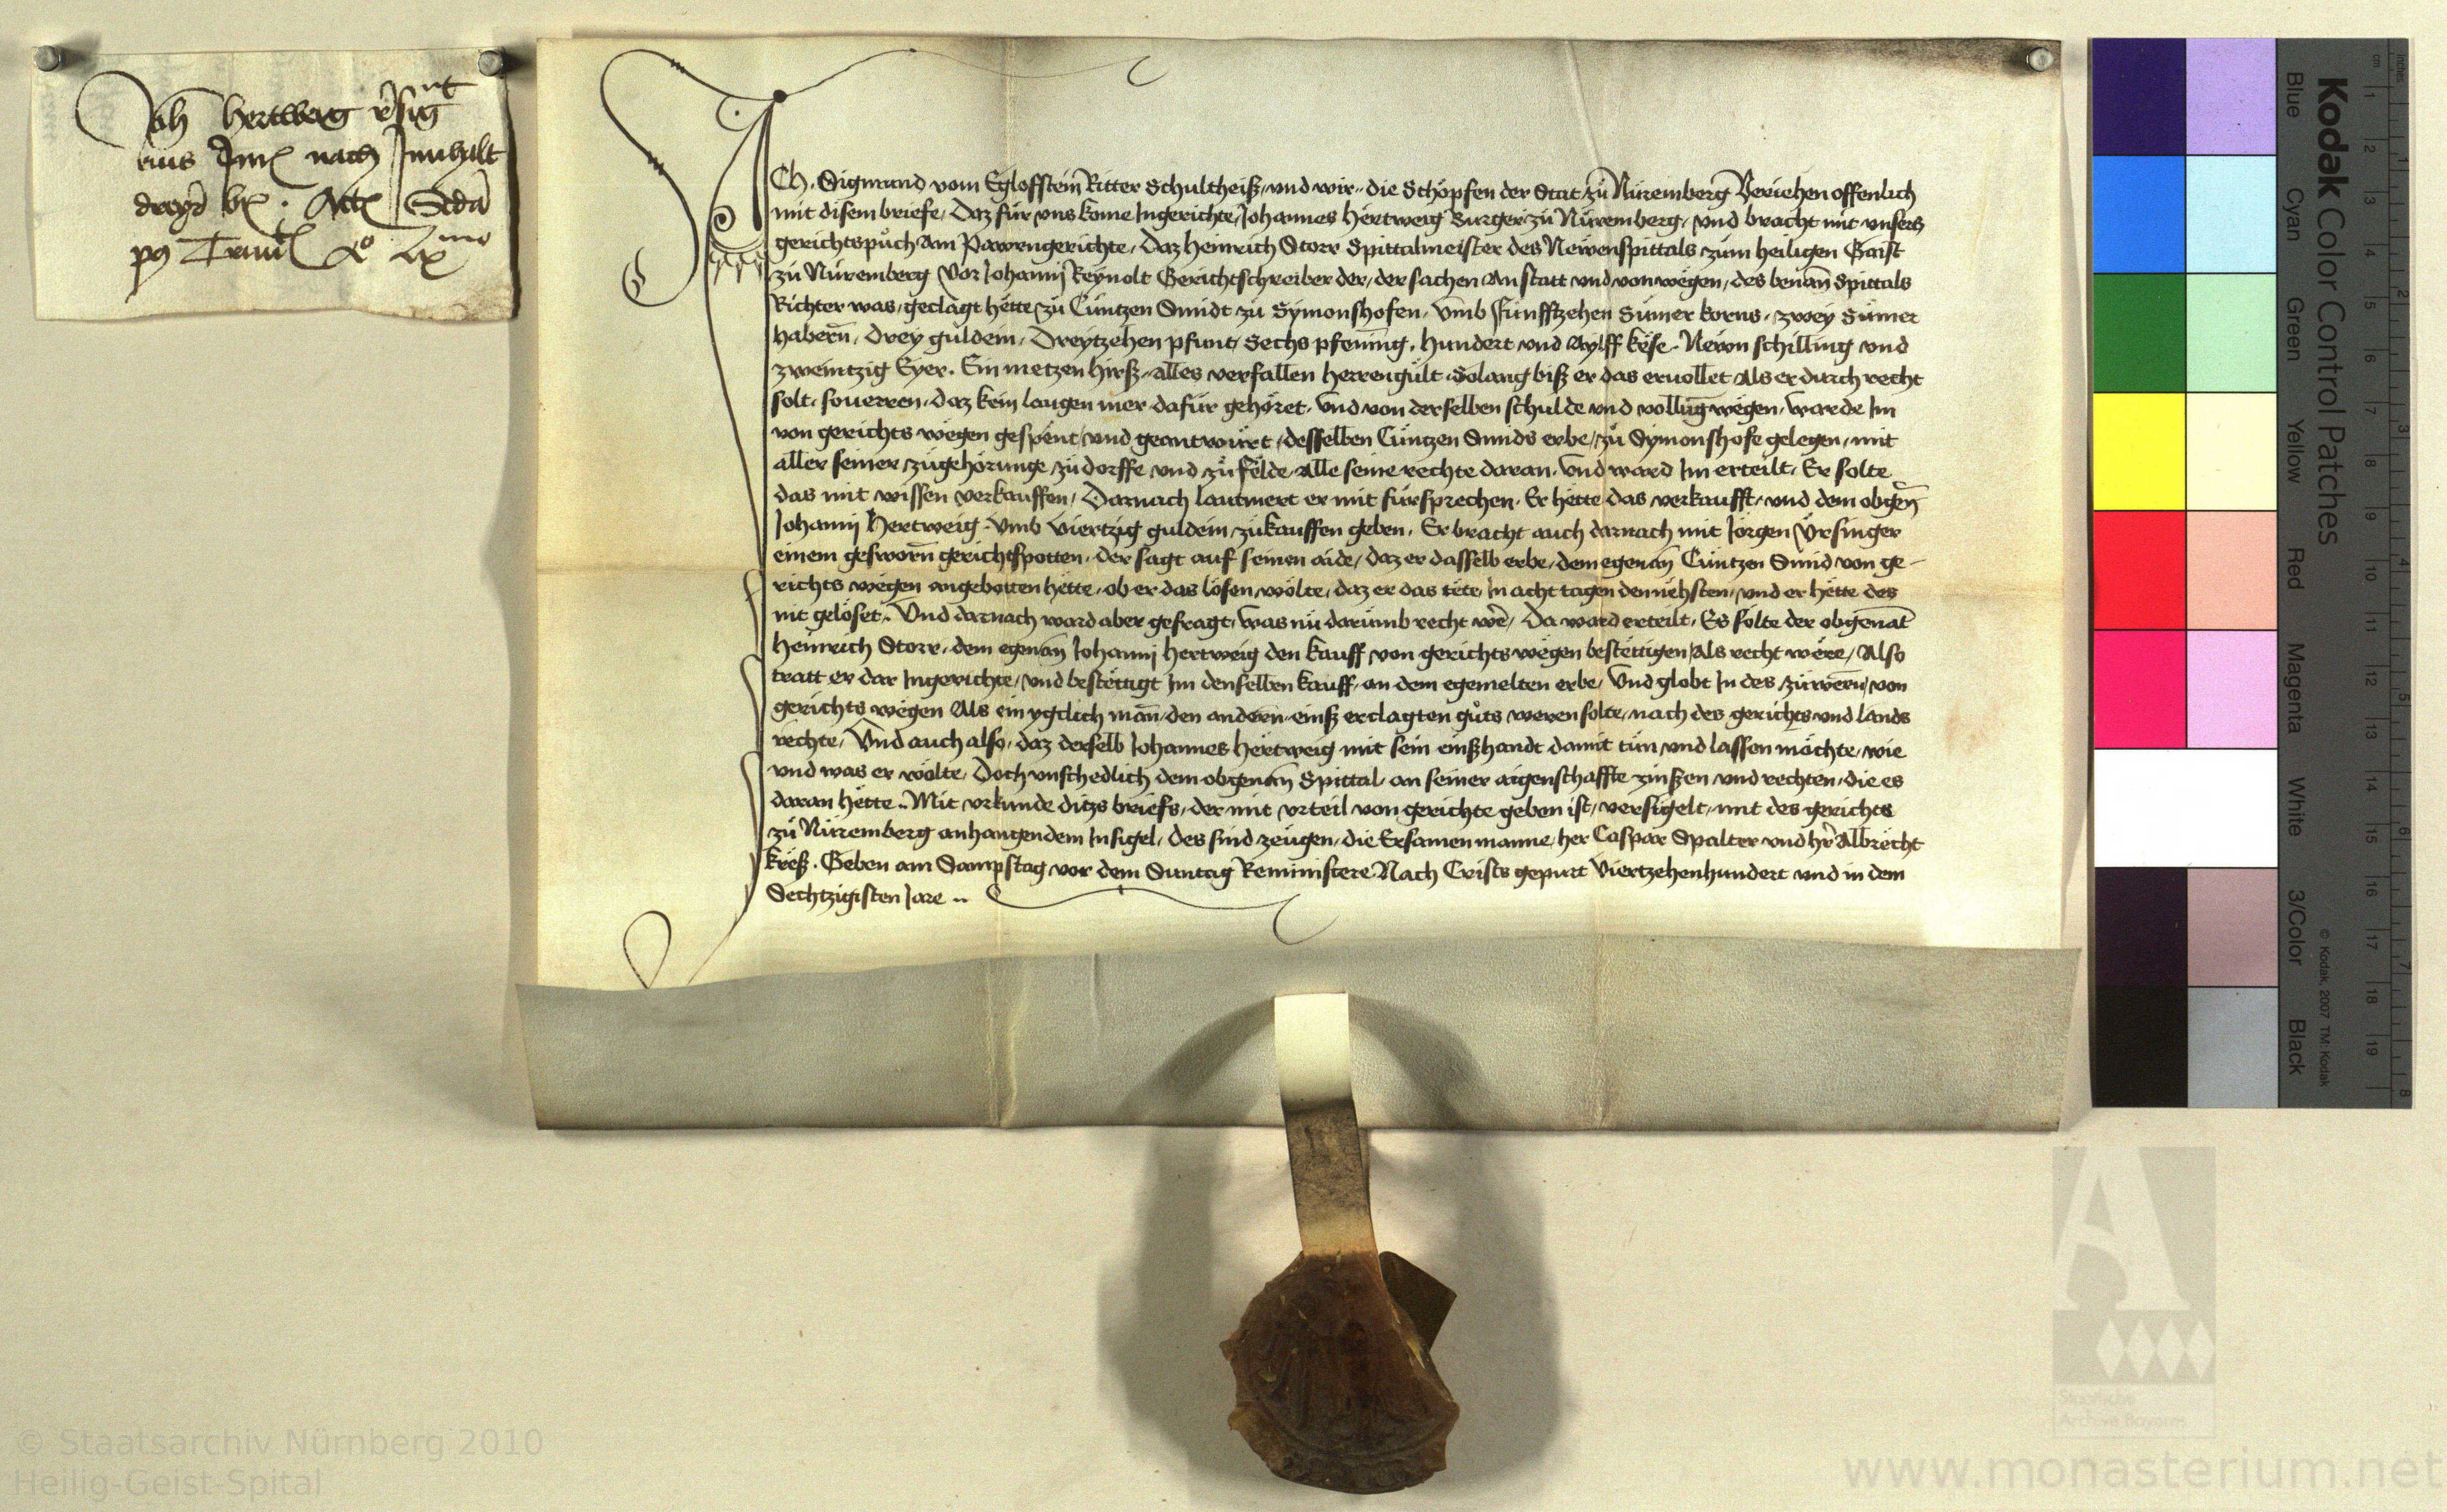 Joh Hertweig
nach Innhalt
ICh Sigmund vom Egloffstein Ritter Schultheiß, vnd wir, die Schöpfen der Stat zu Nüremberg Veriehen offenlich
mit disem briefe, Daz für vns kome Ingerichte, Johannes Hertweig Burger zu Nüremberg, vnd bracht mit vnsers
gerichtspuch Am Pawrngerichte, daz Heinrich Storr Spittalmeister des Newenspittals zum heiligen Gaist
zu Nüremberg Vor Johannj Reynolt Gerichtschreiber der, der sachen An statt vnd von wegen, des benan̄ Spittals
Richter was, geclagt hette zu Cüntzen Smidt zu Symonshofen, Vmb fünfftzehen Sümer korns, zwey Sümer
habern̄, drey guldein, Dreytzehen pfunt, Sechs pfenning, hundert vnd Aylff kese, Newn schilling vnd
zweintzig Eyer, Ein metzen hirß, alles verfallen herrengült, Solang biß er das eruollet als er durch recht
solt, souerren, daz kein laugen mer dafür gehöret, Vnd von derselben schulde vnd vollūg wegen, warde Im
von gerichts wegen gespent, vnd geantwürt, desselben Cüntzen Smids erbe, zu Symonshofe gelegen, mit
aller seiner zugehörunge zu dorffe vnd zu felde, alle seine rechte daran, Vnd ward Im erteilt, Er solte
das mit wissen verkauffen, Darnach lautmert er mit fürsprechen, Er hette das verkaufft, vnd dem obgen̄
Johannj Hertweig, Vmb Viertzig guldein, zukauffen geben, Er bracht auch darnach mit Jörgen Vrsinger
einem gesworn̄ gerichtspotten, der sagt auf seinen aide, daz er dasselb erbe, dem egenan̄ Cüntzen Smid von ge-
richts wegen angebotten hette, ob er das lösen wölte, daz er das tete, In acht tagen den nehsten, vnd er hette des
nit gelöset, Vnd darnach ward aber gefragt, was nü darümb recht we͂r, Da ward erteilt, Es solte der obgenāt
Heinrich Storr, dem egenan̄ Johannj Hertweig den kauff von gerichts wegen bestettigen, als recht were, Also
tratt er dar Ingerichte, vnd bestettigt Im denselben kauff, an dem egemelten erbe, Vnd globt In des, zuwern̄, von
gerichts wegen Als ein ygclich man̄, den andern, einß erclagten guts weren solte, nach des gerichts vnd lands
rechte, Vnd auch also, daz derselb Johannes Hertweig mit sein einßhandt damit tün vnd lassen möchte, wie
vnd was er wölte, Doch vnschedlich dem obgenan̄ Spittal an seiner aigenschaffte zinßen vnd rechten, die es
daran hette. Mit vrkunde ditzs briefs, der mit vrteil von gerichte geben ist, versigelt, mit des gerichts
zu Nüremberg anhangendem Insigel, des sind zeugen, die Ersamen manne, her Caspar Spalter vnd hr̄ Albrecht
kreß. Geben am Sampstag vor dem Suntag Reministere Nach Crists gepurt Viertzehenhundert vnd in dem
Sechtzigisten Jare
Kodak Color Control Patches
Blue Cyan Green Yellow Red Magenta White 3/Color Black
© Kodak, 2007 TM: Kodak
cm 1 2 3 4 5 6 7 8 9 10 11 12 13 14 15 16 17 18 19
inches 1 2 3 4 5 6 7 8
Staatliche
Archive Bayerns
© Staatsarchiv Nürnberg 2010
Heilig-Geist-Spital
www.monasterium.net